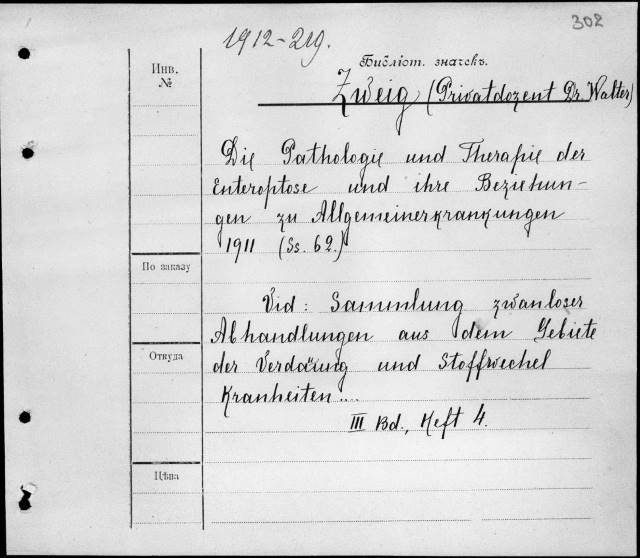 302
1912-219.
Инв.
№
Библіот. значекъ.
Zweig (Privatdozent Dr. Walter)
Die Pathologie und Therapie der
Enteroptose und ihre Beziehun-
gen zu Allgemeinerkrankungen
1911 (Ss. 62.)
По заказу
Vid: Sammlung zwanloser
Abhandlungen aus dem Gebiete
Откуда
der Verdaüng und Stoffwechel
Kranheiten....
III Bd., Heft 4.
Цѣна